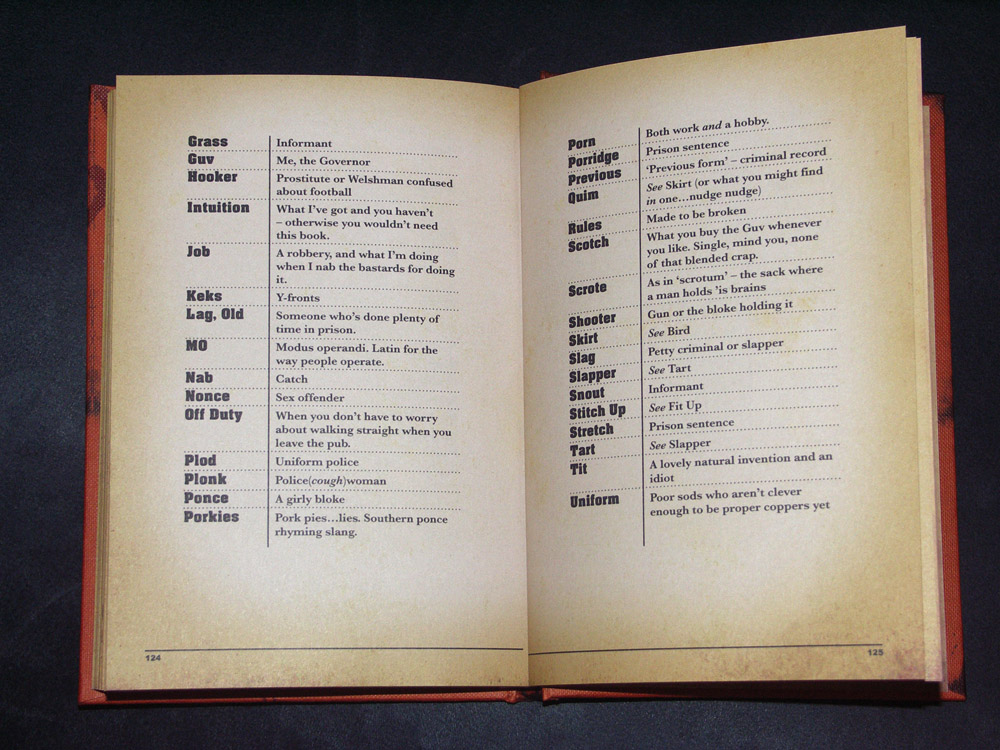 Grass Informant
Guv Me, the Governor
Hooker Prostitute or Welshman confused
about football
Intuition What I've got and you haven't
– otherwise you wouldn't need
this book.
Job A robbery, and what I'm doing
when I nab the bastards for doing
it.
Keks Y-fronts
Lag, Old Someone who's done plenty of
time in prison.
MO Modus operandi. Latin for the
way people operate.
Nab Catch
Nonce Sex offender
Off Duty When you don't have to worry
about walking straight when you
leave the pub.
Plod Uniform police
Plonk Police(cough)woman
Ponce A girly bloke
Porkies Pork pies…lies. Southern ponce
rhyming slang.
124
Porn Both work and a hobby.
Porridge Prison sentence
Previous 'Previous form' – criminal record
Quim See Skirt (or what you might find
in one…nudge nudge)
Rules Made to be broken
Scotch What you buy the Guv whenever
you like. Single, mind you, none
of that blended crap.
Scrote As in 'scrotum' – the sack where
a man holds 'is brains
Shooter Gun or the bloke holding it
Skirt See Bird
Slag Petty criminal or slapper
Slapper See Tart
Snout Informant
Stitch Up See Fit Up
Stretch Prison sentence
Tart See Slapper
Tit A lovely natural invention and an
idiot
Uniform Poor sods who aren't clever
enough to be proper coppers yet
125